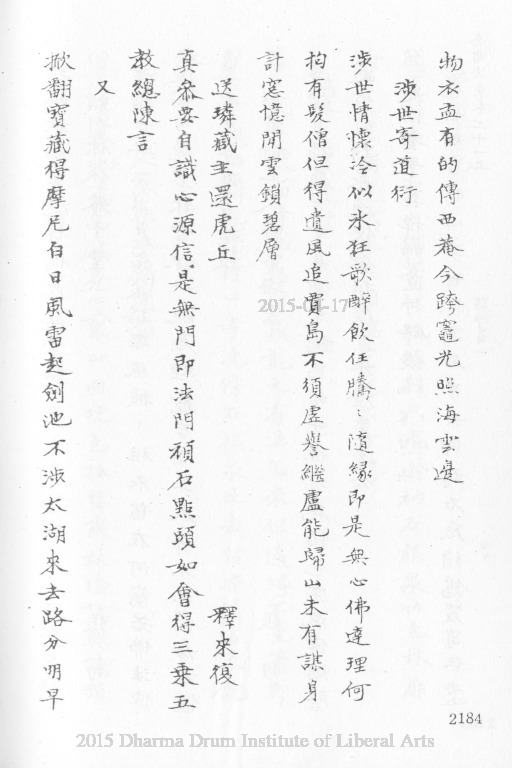 物衣盂有的傳西菴今跨竈光照海雲邊
涉世寄道衍
涉世情懷冷似氷狂歌醉飲任騰〻隨緣即是無心佛達理何
拘有髮僧但得遺風追賈島不須虛譽繼盧能歸山未有謀身
計窓憶開雲鎖碧層
送璘藏主還虎丘
釋來復
真叅要自識心源信是無門即法門頑石點頭如會得三乗五
教總陳言
又
掀翻寶藏得摩尼白日風雷起劍池不涉太湖來去路分明早
2184
2015-04-17
2015 Dharma Drum Institute of Liberal Arts